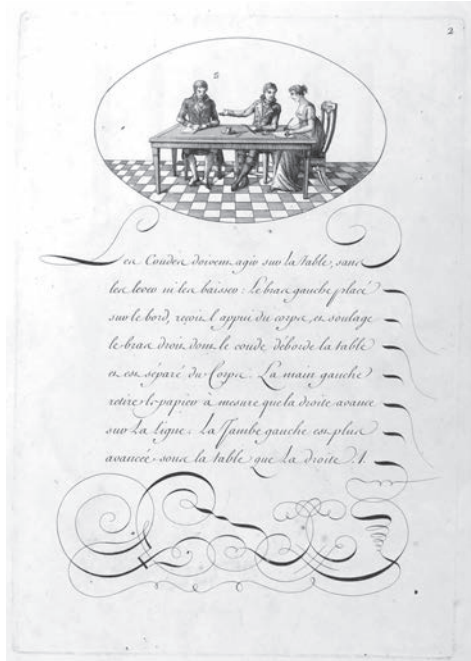 2
5
Les Coudes doivent agir sur la table, sans
les lever ni les baisser : Le bras gauche placé
sur le bord, reçoit l'appui du corps, et soulage
le bras droit dont le coude déborde la table
et est séparé du Corps. La main gauche
retire le papier à mesure que la droite avance
sur la ligne. La Jambe gauche est plus
avancée sous la table que la droite. /.